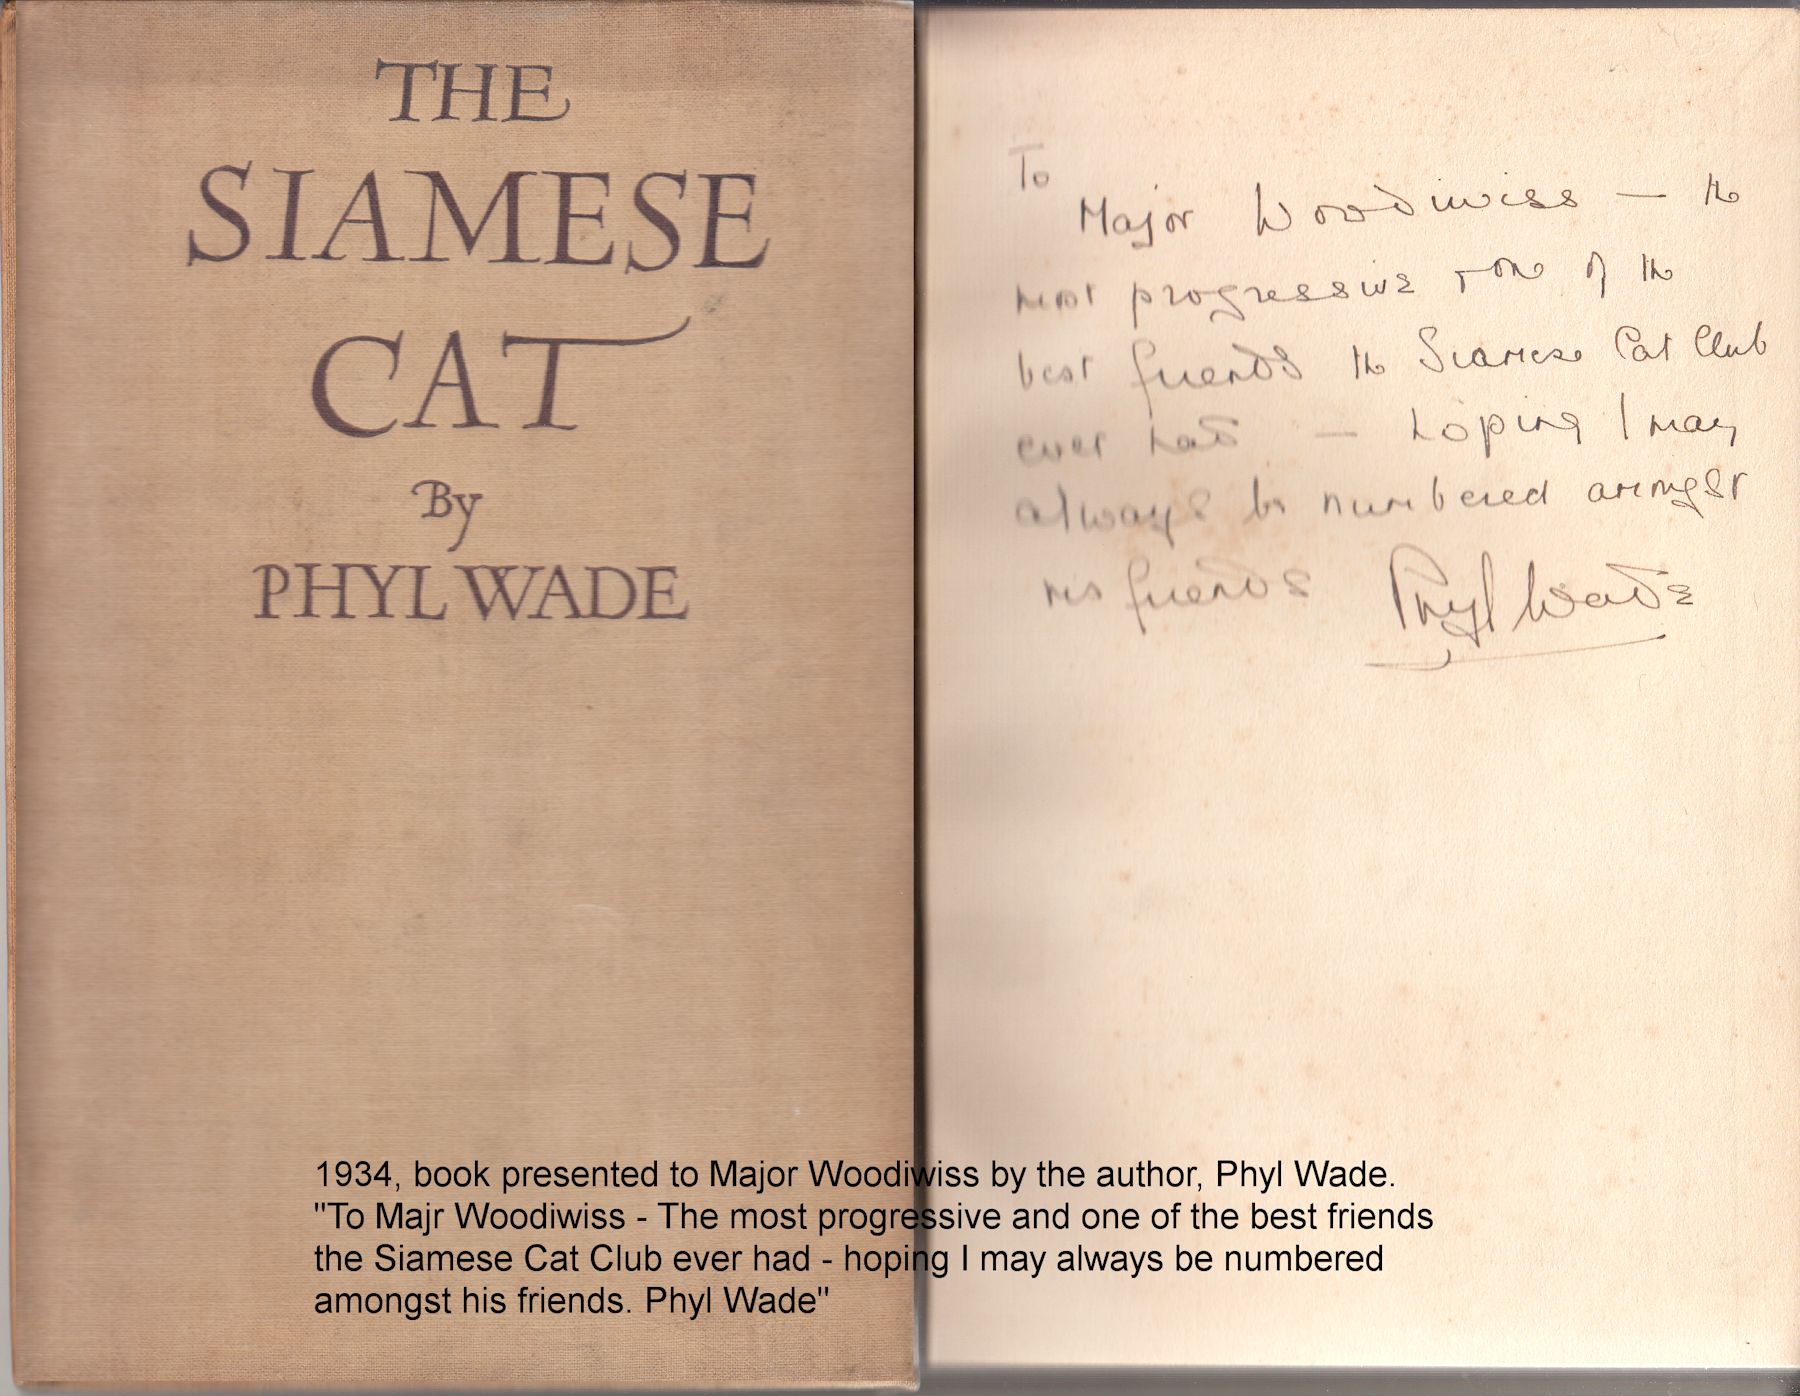 THE
SIAMESE
CAT
By
PHYL WADE
To
Major Woodiwiss — the
most progressive + one of the
best friends the Siamese Cat Club
ever had — hoping I may
always be numbered amongst
his friends Phyl Wade
1934, book presented to Major Woodiwiss by the author, Phyl Wade.
"To Majr Woodiwiss - The most progressive and one of the best friends
the Siamese Cat Club ever had - hoping I may always be numbered
amongst his friends. Phyl Wade"